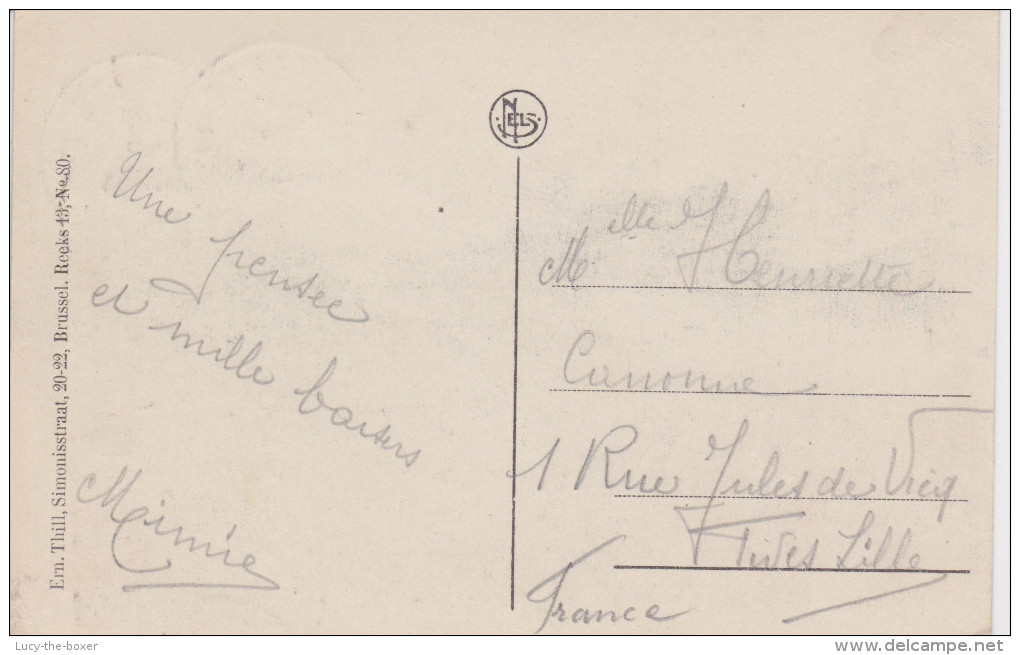 Ern. Thill, Simonisstraat, 20-22, Brussel. Reeks 13, No 80.
NELS
Une pensée
et mille baisers
Mimie
Melle Henriette
Canonne
1 Rue Jules de Vicq
Fives Lille
France
Lucy-the-boxer
www.delcampe.net